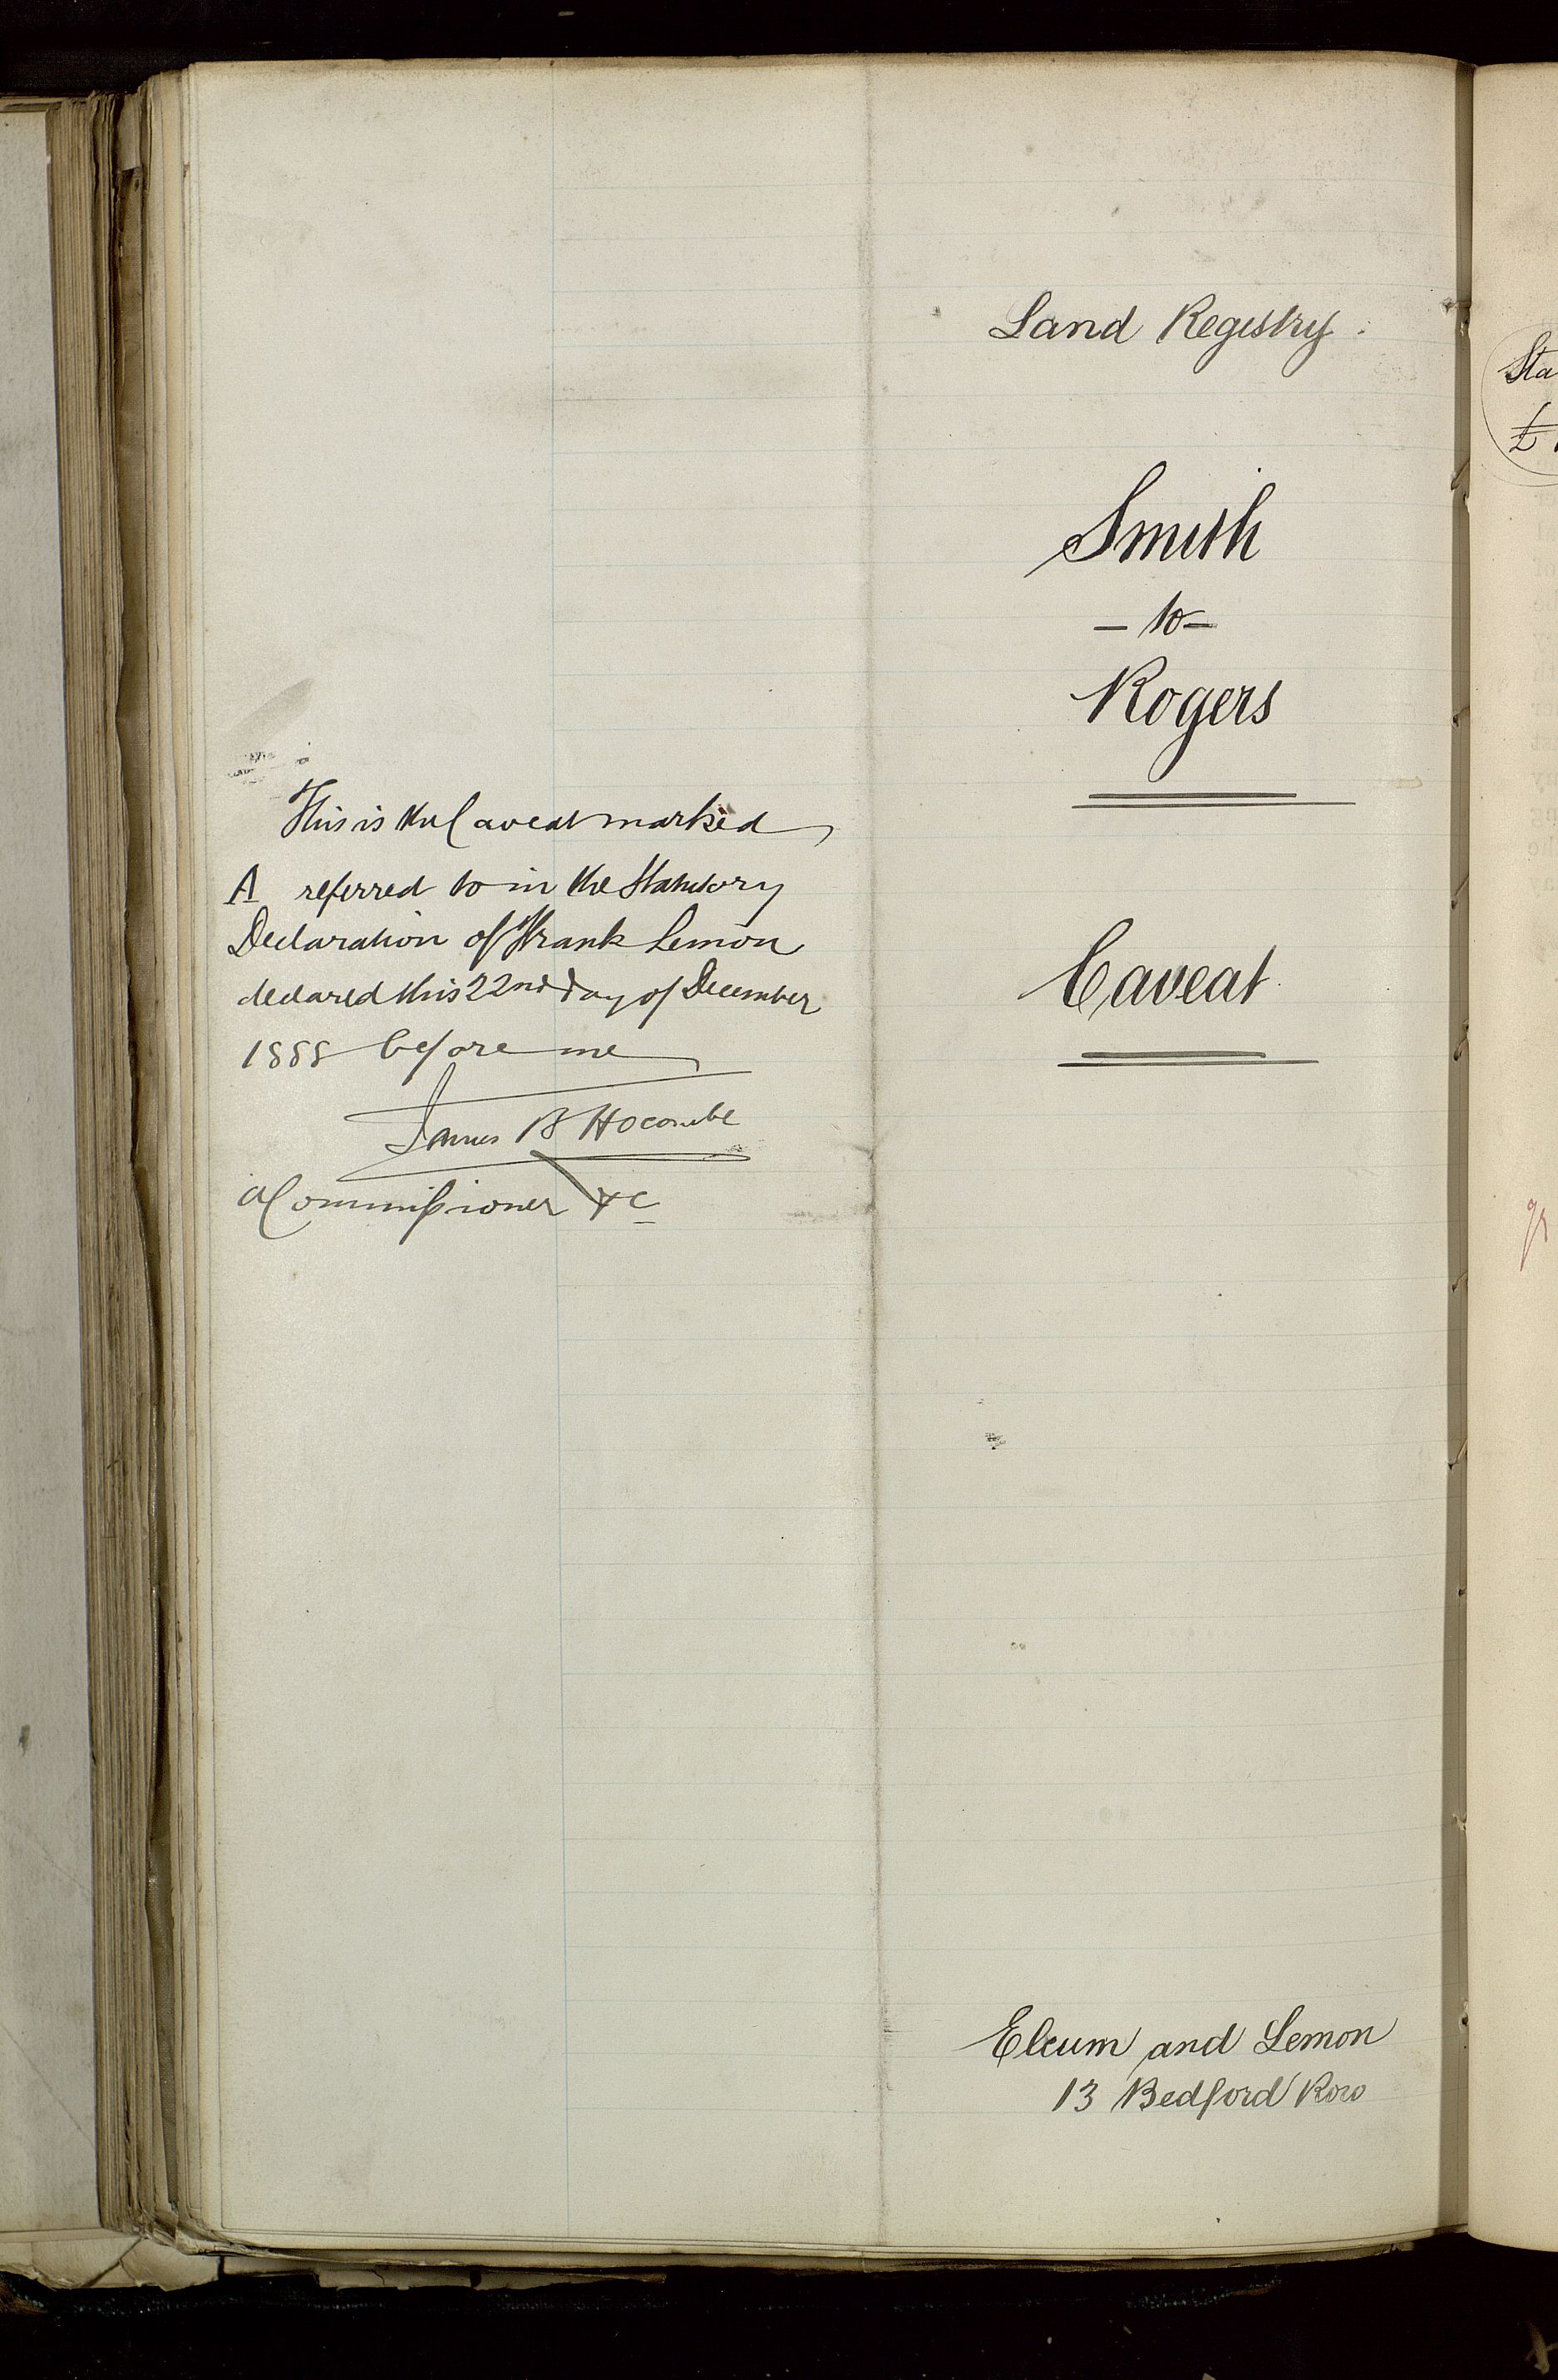 Land Registry.
Smith
- to -
Rogers
Caveat.
This is the Caveat marked
A referred to in the Statutory
Declaration of Frank Lemon
declared this 22nd day of December
1888 before me
James B
a Commissioner &c
Elcum and Lemon
13 Bedford Row
Sta
£